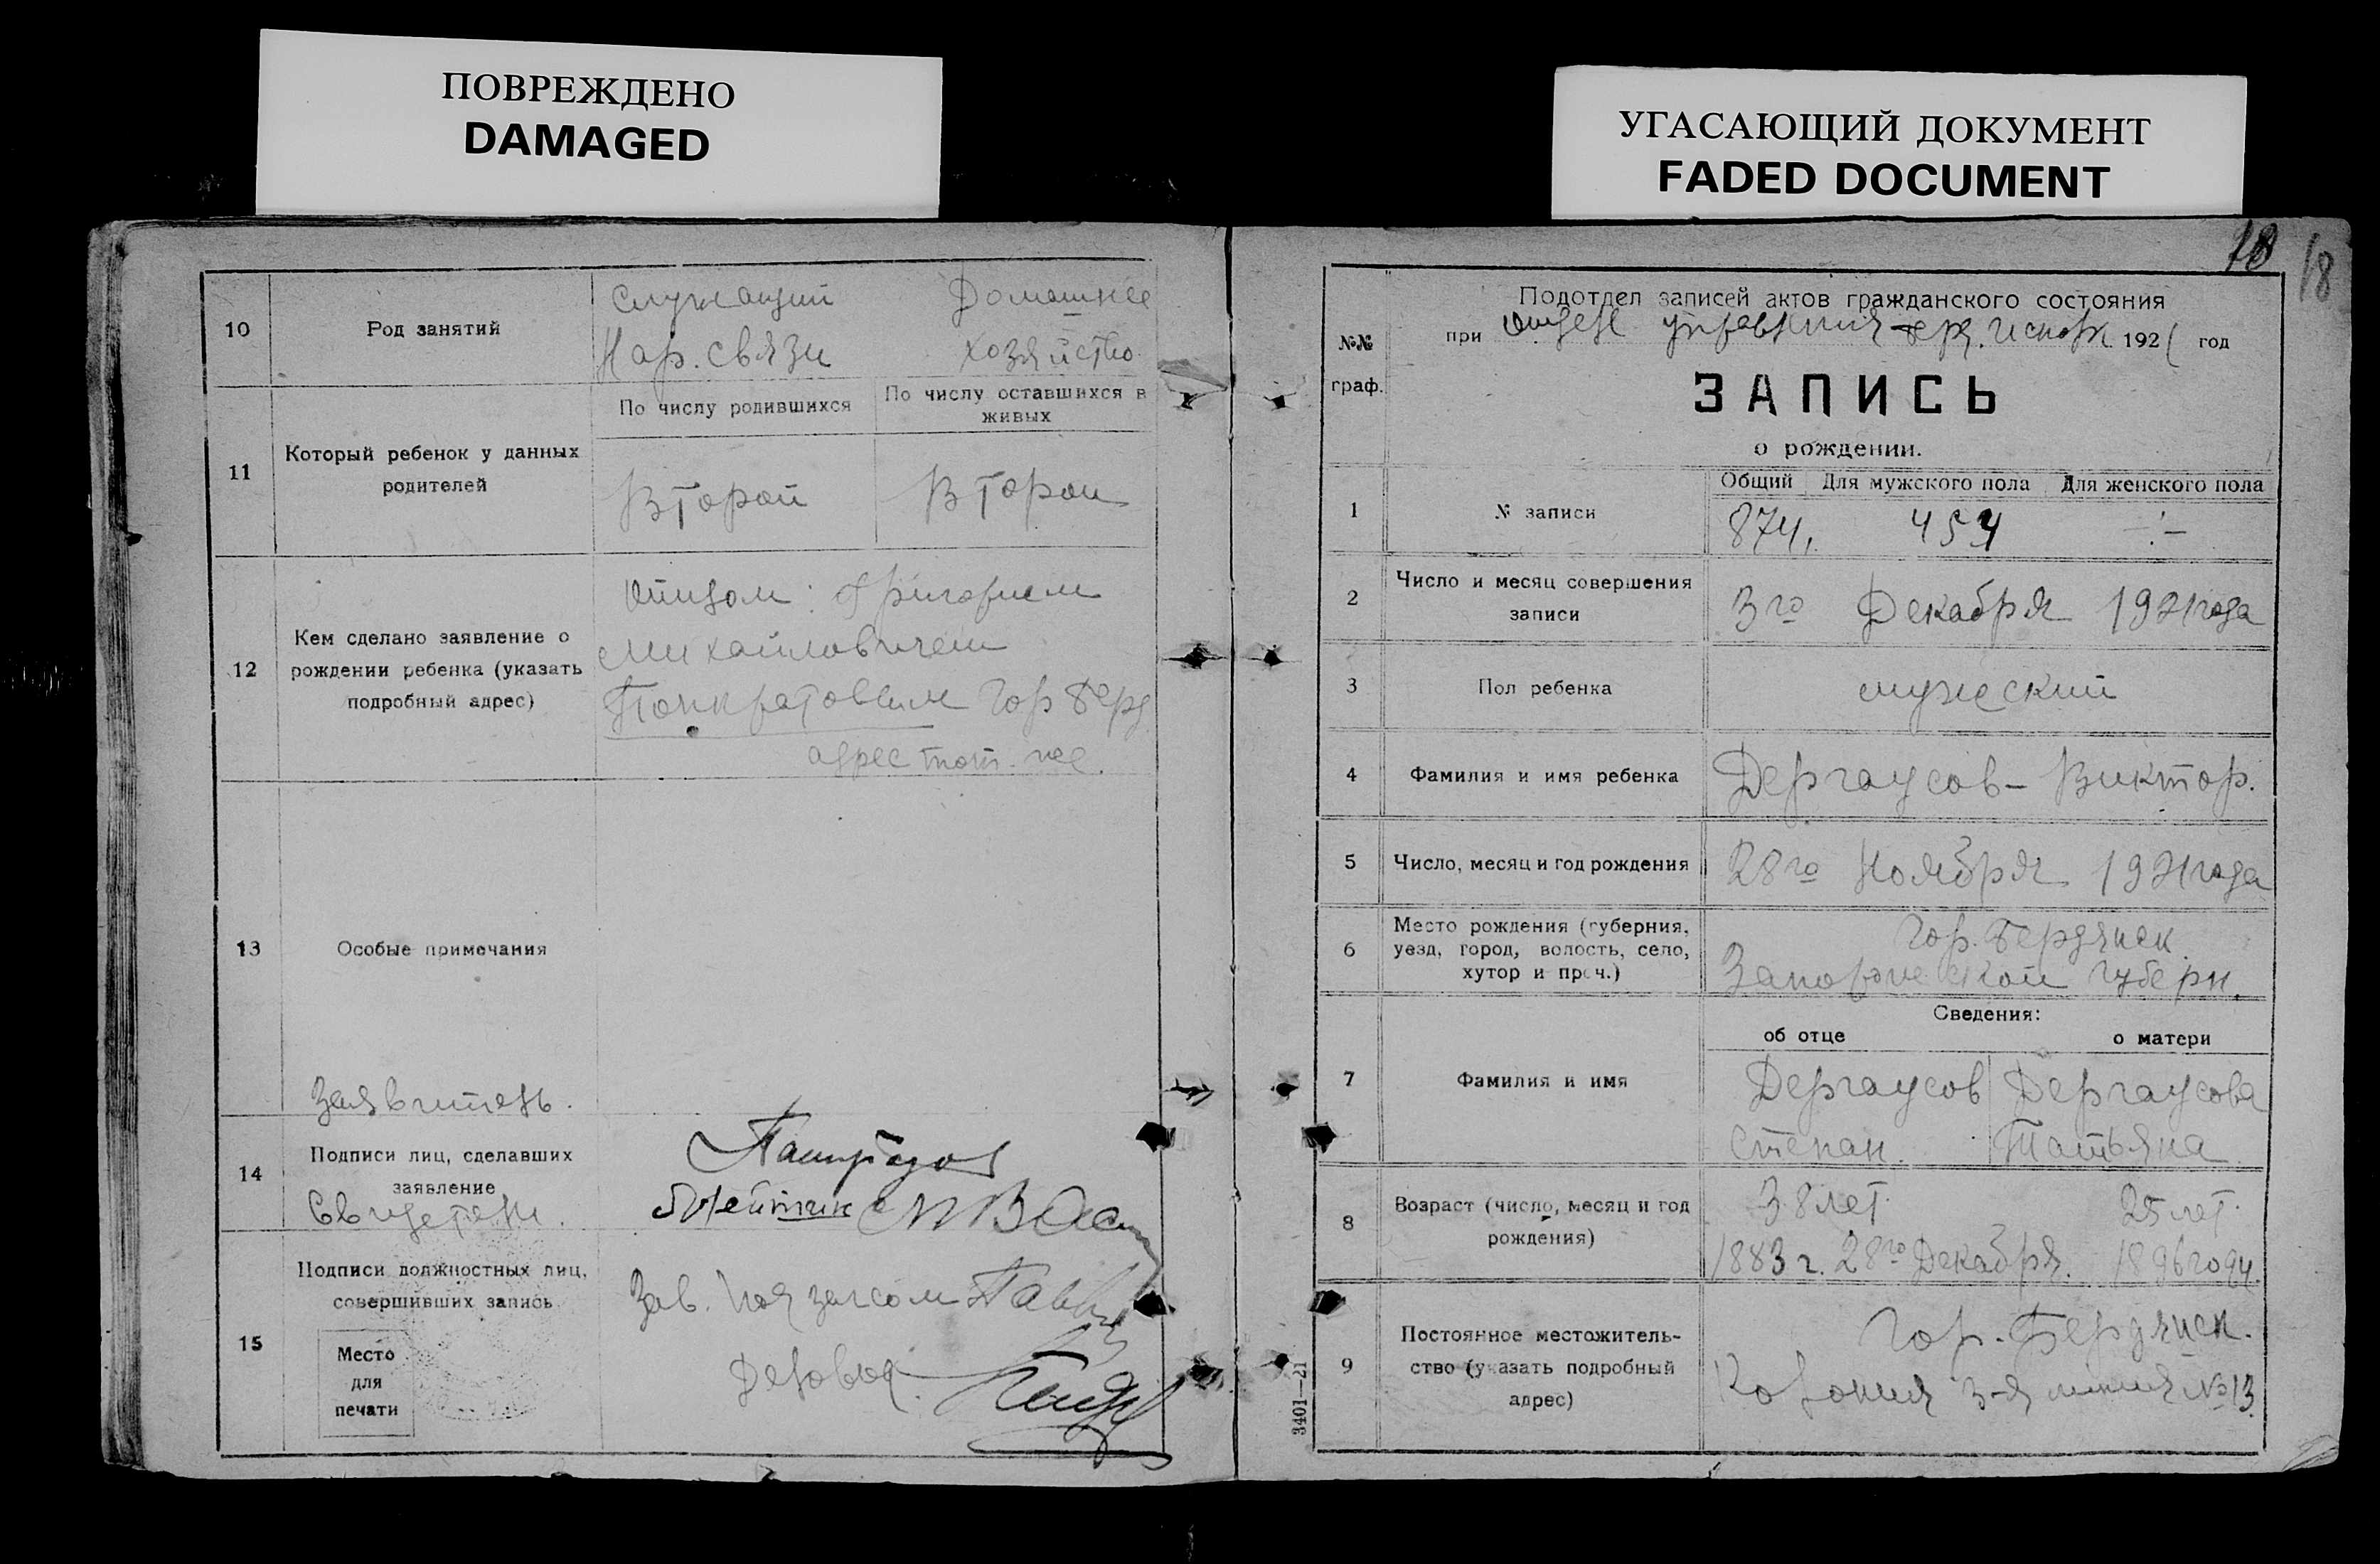 ПОВРЕЖДЕНО
DAMAGED
УГАСАЮЩИЙ ДОКУМЕНТ
FADED DOCUMENT
10 Род занятий Служащий Домашнее
Нар. связи хозяйство
11 Который ребенок у данных родителей
По числу родившихся По числу оставшихся в живых
Второй Второй
12 Кем сделано заявление о
рождении ребенка (указать
подробный адрес)
Отцом: Григорием
Михайловичем
Панкратовым Гор Берд
адрес тот-же.
13 Особые примечания
Заявитель.
14 Подписи лиц, сделавших
заявление
Свидетели.
15 Подписи должностных лиц,
совершивших запись
Место
для
печати
Зав. загсом
Деловод.
18 18
№№
граф.
Подотдел записей актов гражданского состояния
при Отделе управления 1921 год
ЗАПИСЬ
о рождении.
Общий Для мужского пола Для женского пола
1 № записи 874, 454 -:-
2 Число и месяц совершения
записи
3го Декабря 1921 года
3 Пол ребенка мужеский
4 Фамилия и имя ребенка Дергаусов - Виктор.
5 Число, месяц и год рождения 28го Ноября 1921 года
6 Место рождения (губерния,
уезд, город, волость, село,
хутор и проч.)
Гор. Бердянск
Запорожской губерн.
Сведения:
об отце о матери
7 Фамилия и имя Дергаусов Дергаусова
Степан. Татьяна
8 Возраст (число, месяц и год
рождения)
38 лет. 25 лет.
1883 г. 28го Декабря. 1896 году.
9 Постоянное местожитель-
ство (указать подробный
адрес)
Гор. Бердянск.
Колония 3-я линия № 13.
3401—21